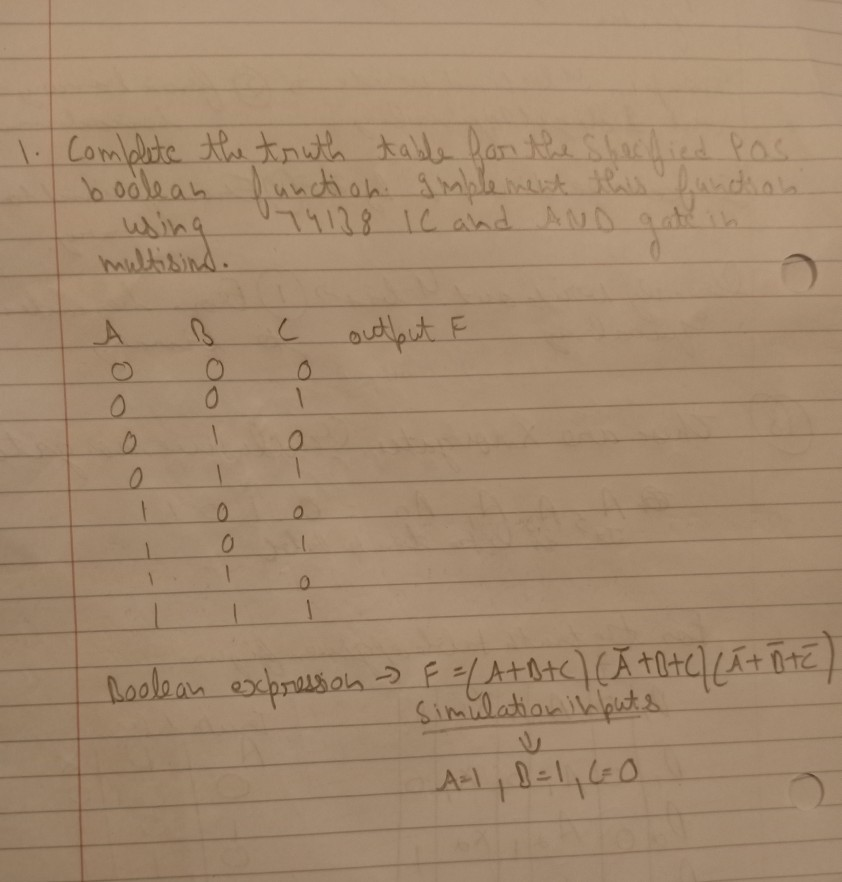 1. Complete the truth table for the specified POS
boolean function. Implement this function
using 74138 IC and AND gate in
multisim.
A B C output F
0 0 0
0 0 1
0 1 0
0 1 1
1 0 0
1 0 1
1 1 0
1 1 1
Boolean expression → F = (A+B+C)(A̅+B+C)(A̅+B̅+C̅)
Simulation inputs
↓
A=1, B=1, C=0